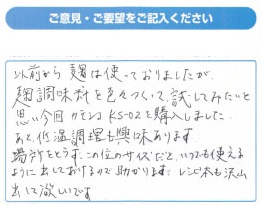 ご意見・ご要望をご記入ください
以前から麹は使っておりましたが、
麹調味料を色々ついて、試してみたいと
思い今回カモシコKS-02を購入しました。
あと、低温調理も興味あります
場所をとらず、この位のサイズだと、いつでも使える
ように出しておけるので助かります。レシピ本も沢山
出して欲しいです